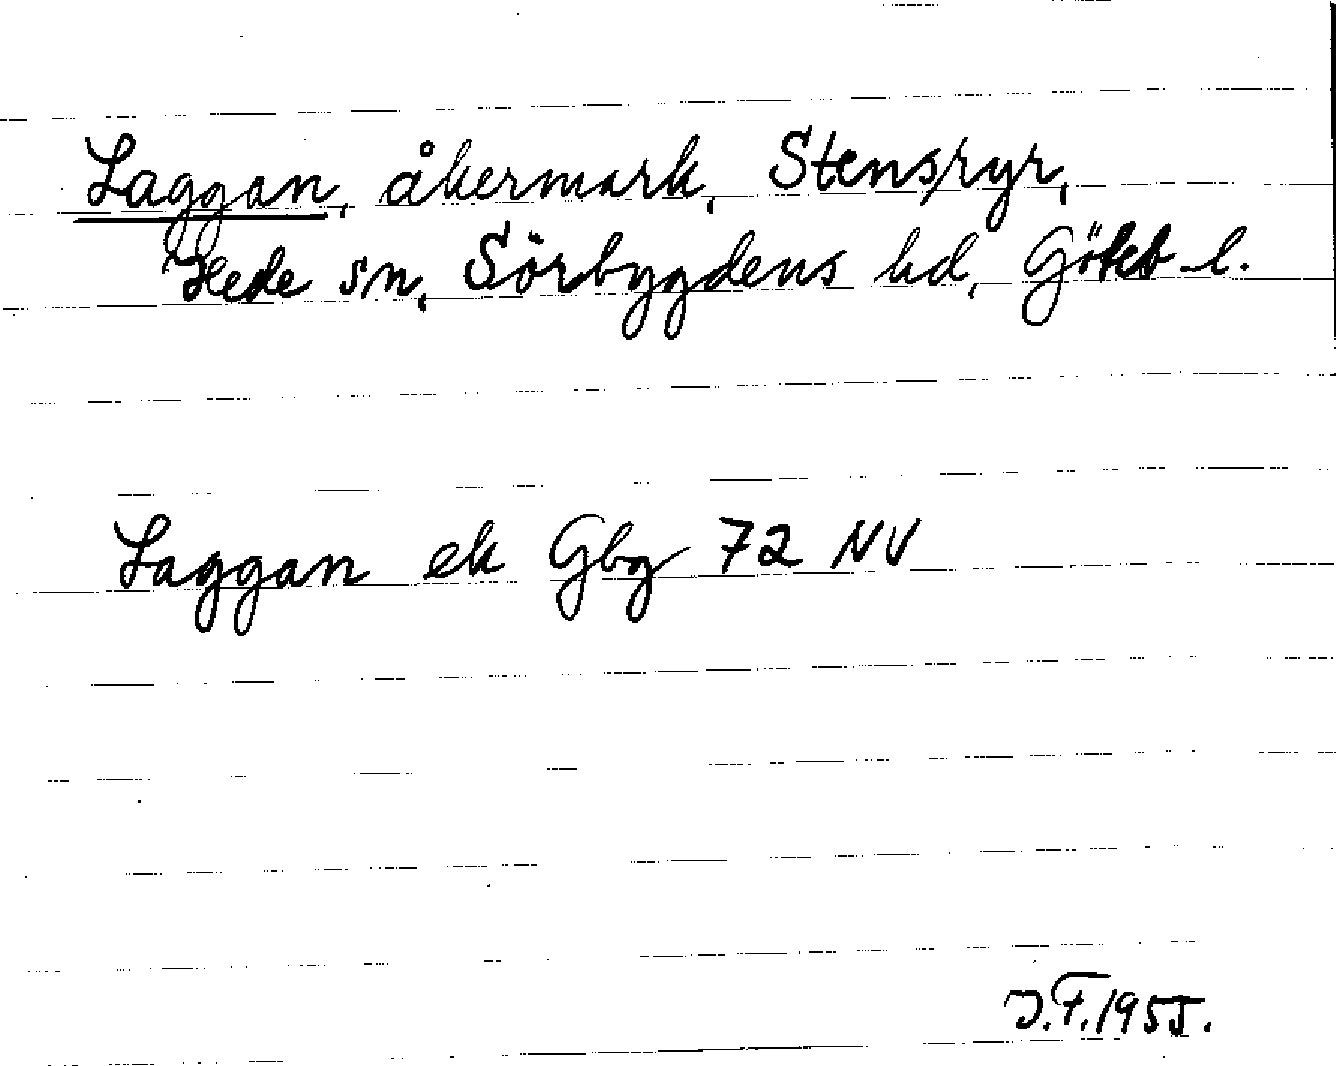 Laggan, åkermark, Stensryr,
Hede sn, Sörbygdens hd, Göteb l.
Laggan ek Gbg 72 NV
J.F. 1955.